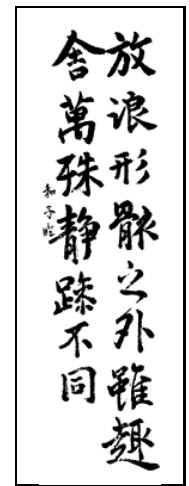 放浪形骸之外雖趣
舍萬殊静躁不同